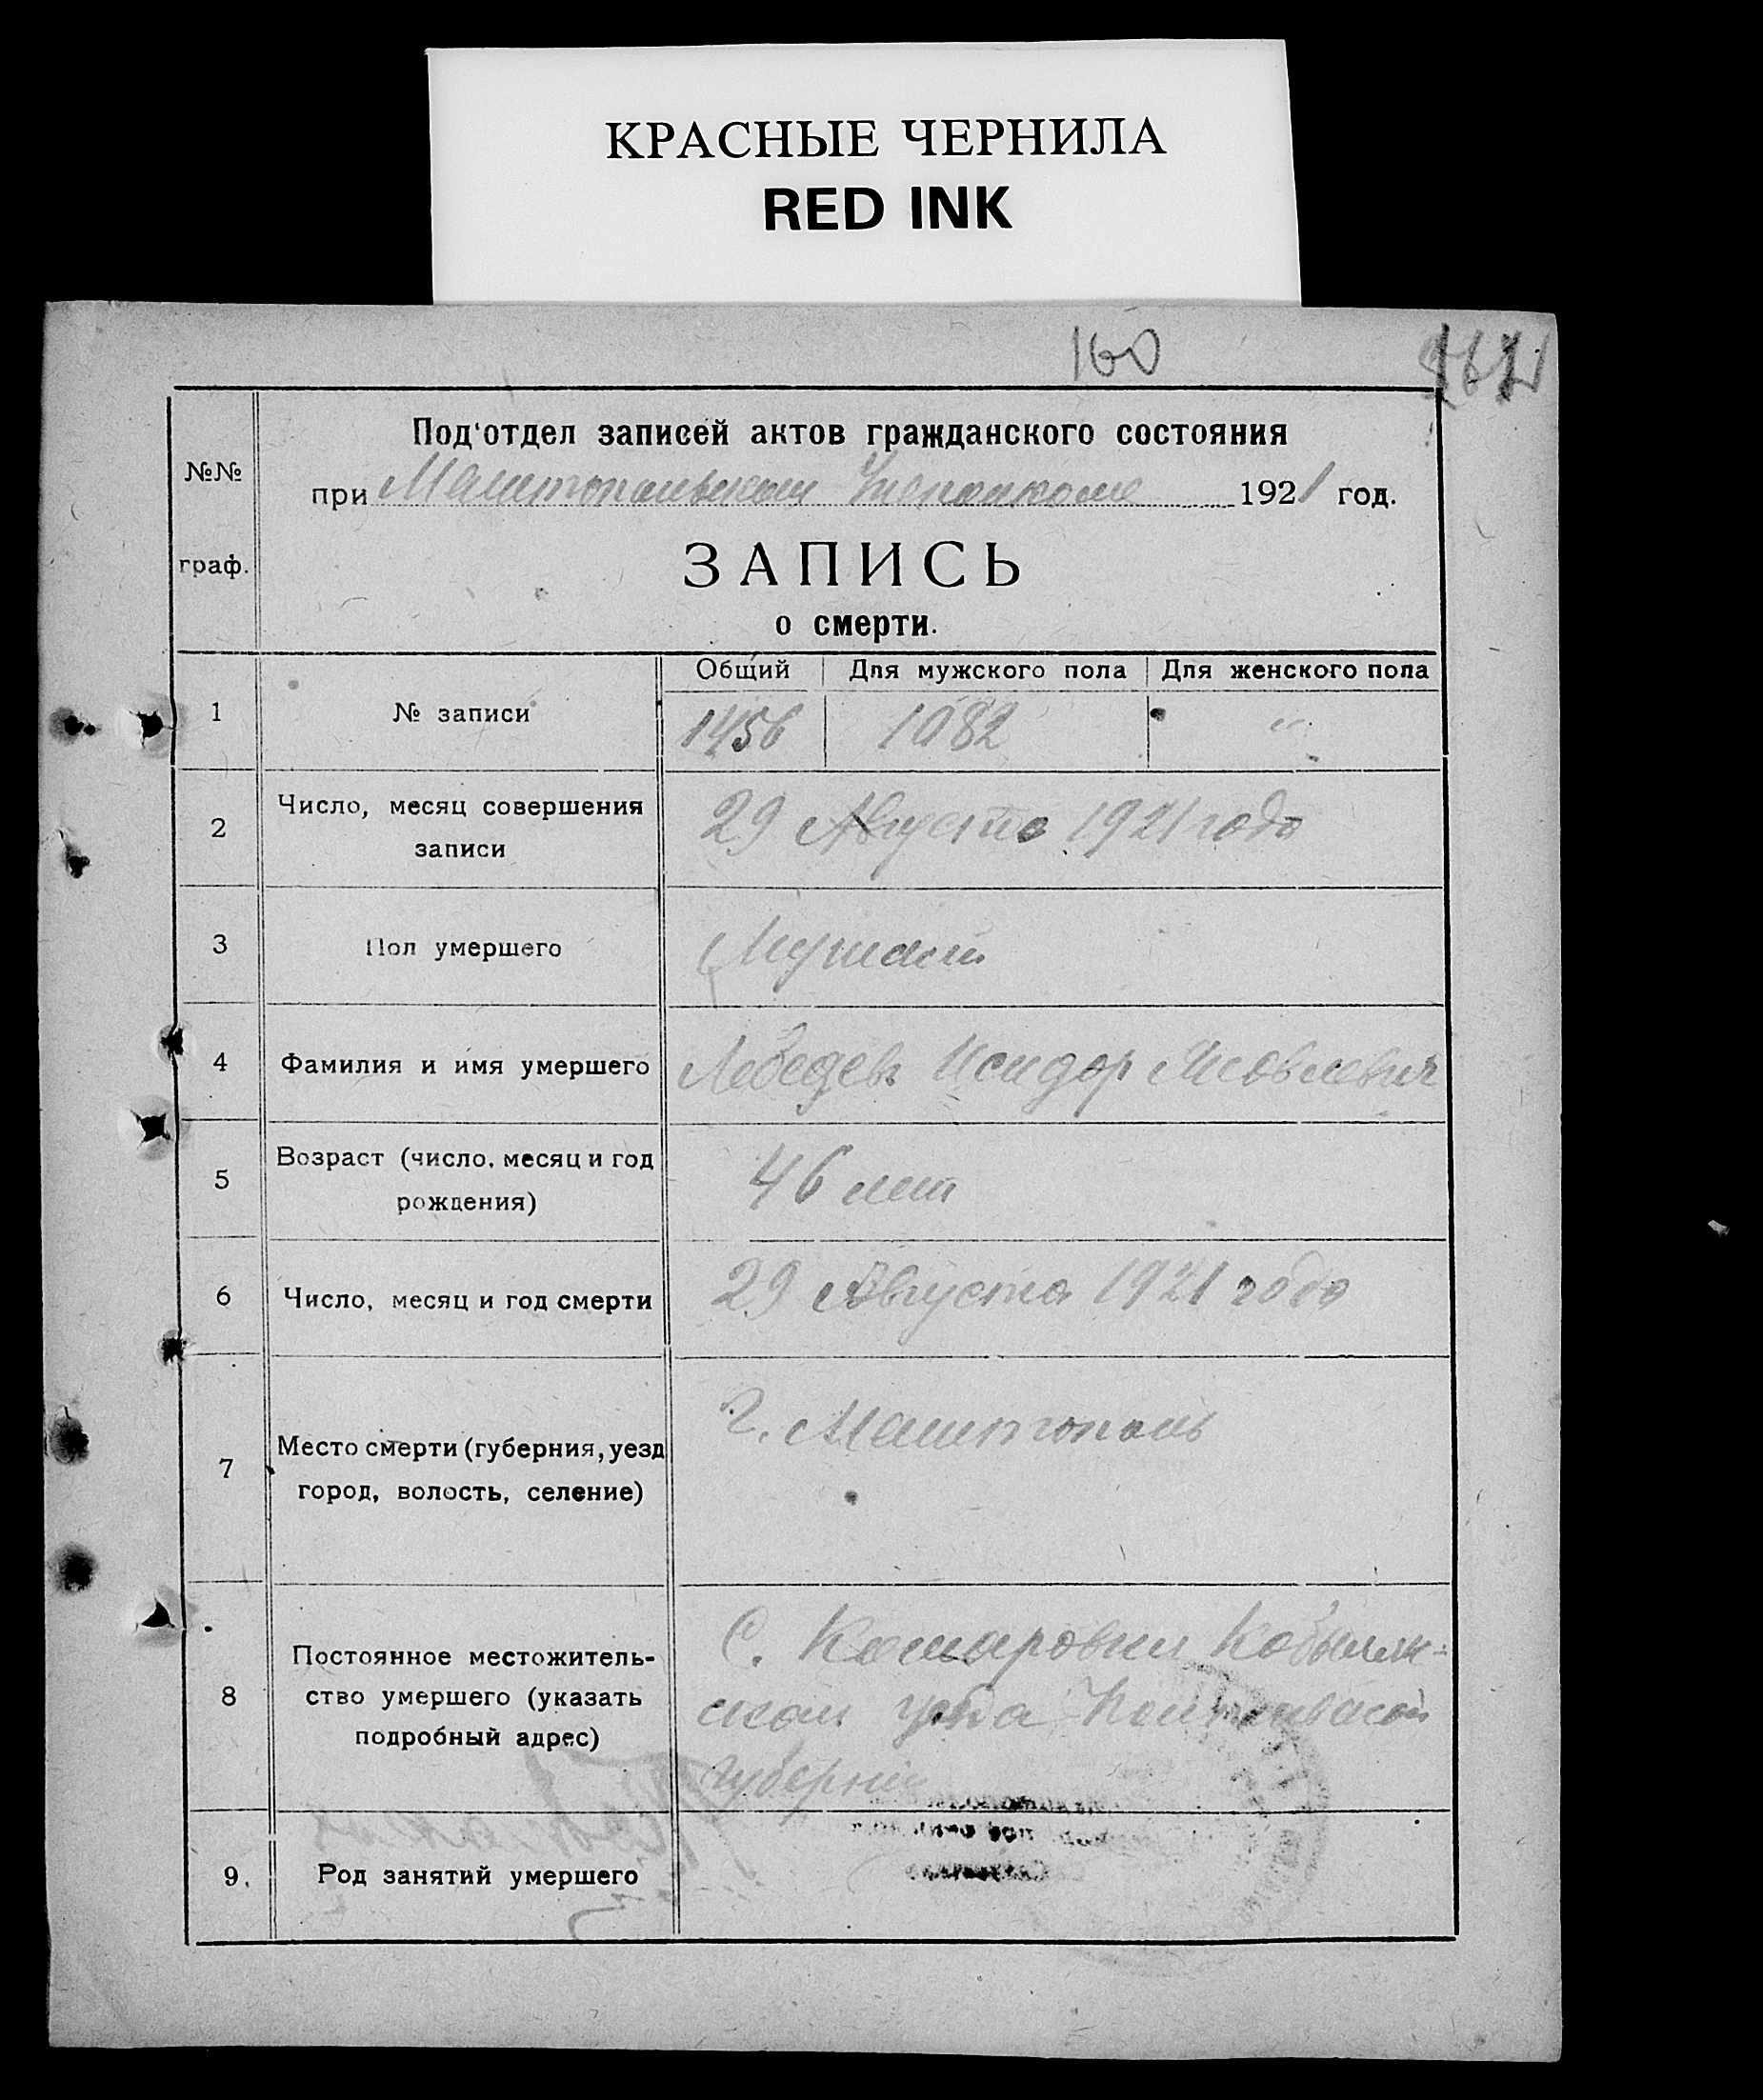 КРАСНЫЕ ЧЕРНИЛА
RED INK
160
Под‘отдел записей актов гражданского состояния
№№
при Мелитопольском Уисполкоме 1921 год.
граф.
ЗАПИСЬ
о смерти.
Общий Для мужского пола Для женского пола
1 № записи 1456 1082 "
2 Число, месяц совершения записи 29 Августа 1921 года
3 Пол умершего Мужской
4 Фамилия и имя умершего Лебедев Исидор Яковлевич
5 Возраст (число, месяц и год рождения) 46 лет
6 Число, месяц и год смерти 29 Августа 1921 года
7 Место смерти (губерния, уезд город, волость, селение) г. Мелитополь
8 Постоянное местожитель-
ство умершего (указать
подробный адрес)
С. Комаровки Кобыляк-
ском уезда Полтавской
губернии
9. Род занятий умершего